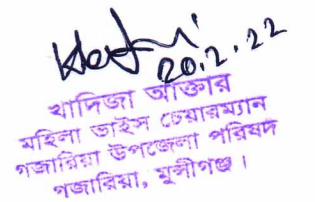 20.2.22
খাদিজা আক্তার
মহিলা ভাইস চেয়ারম্যান
গজারিয়া উপজেলা পরিষদ
গজারিয়া, মুন্সীগঞ্জ।